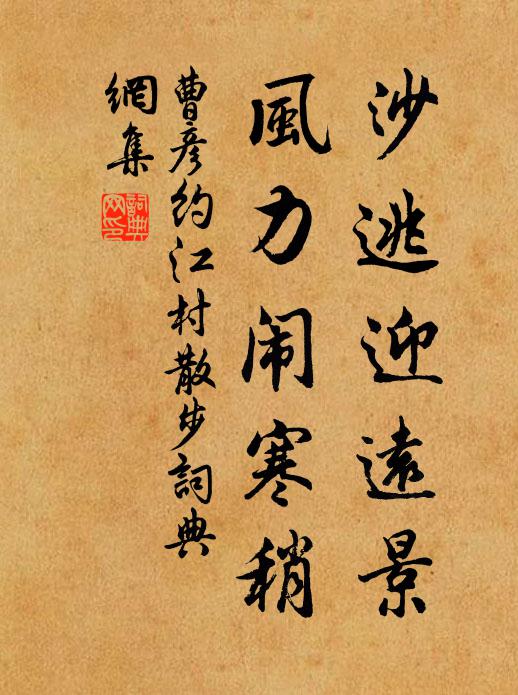 沙逃迎遠景
風力闹寒稍
曹彦約江村散步詞典
網集
詞典网印